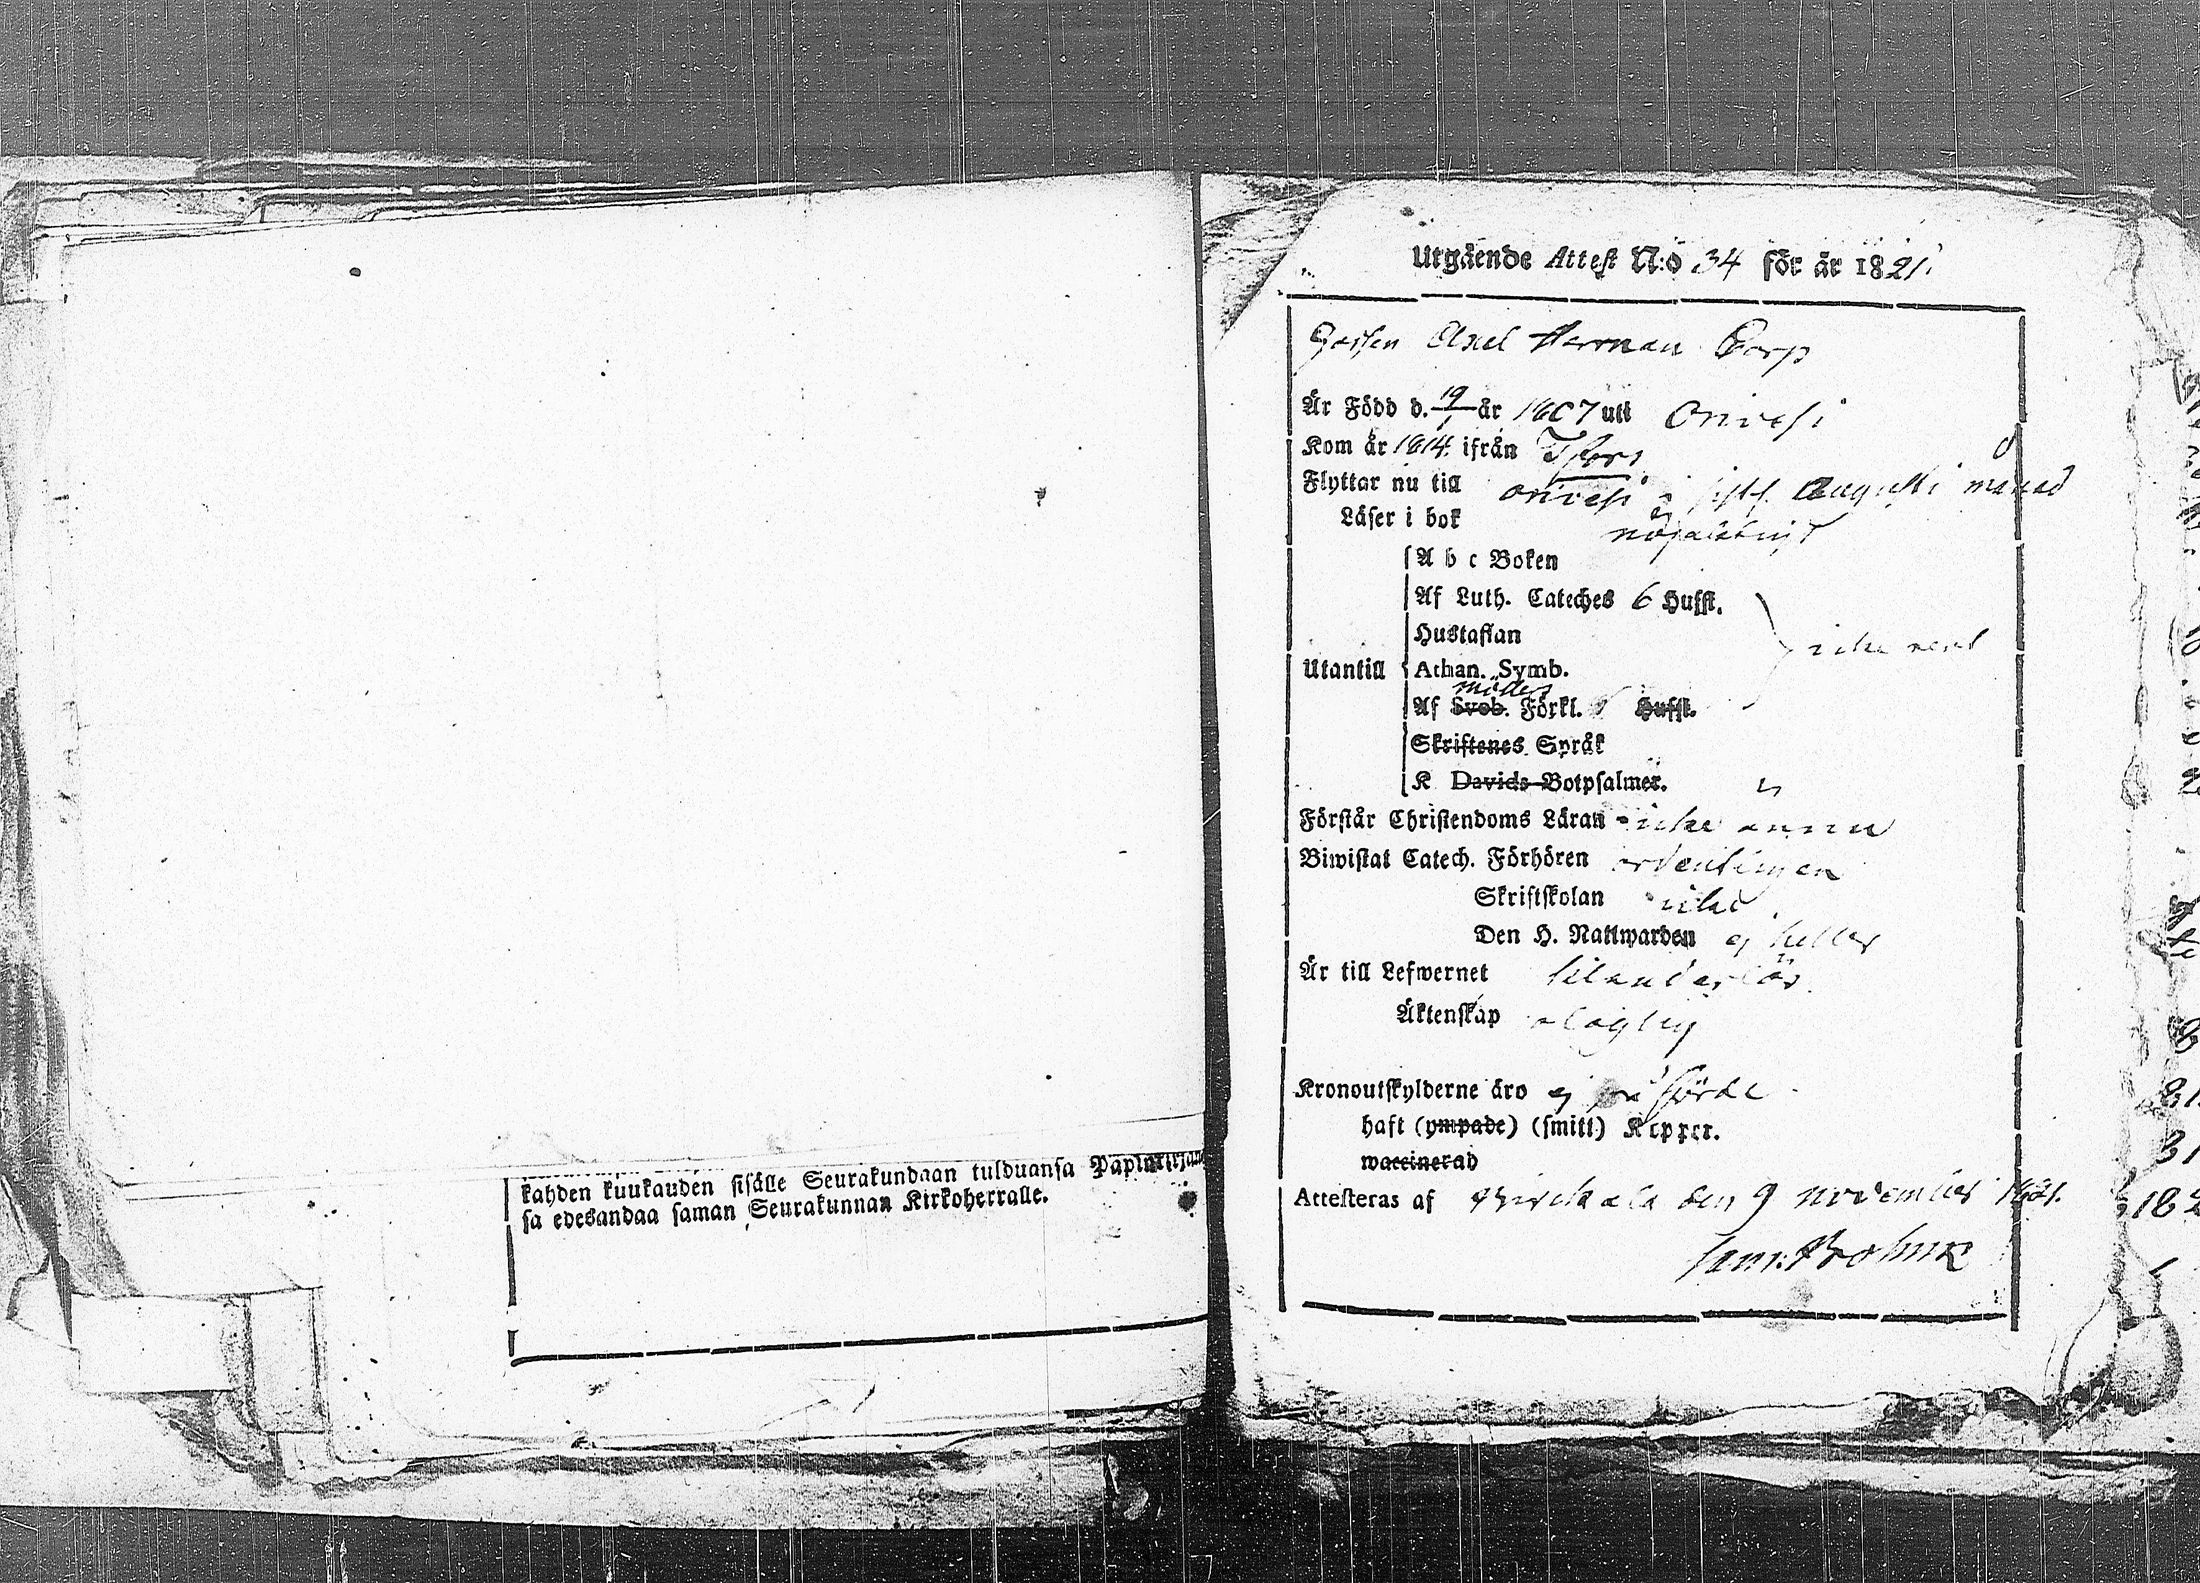 kahden kuukauden sisälle Seurakundaan tulduansa
sa edesandaa saman Seurakunnan Kirkoherralle.
Utgående Attest N:o 34 för år 1821.
Gossen Axel Herman Corp
Är Född d. 19/1 år 1807 uti Orivesi
Kom år 1814. ifrån Tfors
Flyttar nu till Orivesi i sistl. Augusti månad
Läser i bok nöjaktigt
A b c Boken
Af Luth. Cateches 6 Hufst.
Hustaflan
icke rent
Utantill Athan. Symb.
Af Sveb. Förkl. Hufst.
Skriftenes Språk
K Davids Botpsalmer.
Förstår Christendoms Läran icke ännu
Biwistat Catech. Förhören ordentligen
Skriftskolan icke
Den H. Nattwarden ej heller
Är till Lefwernet
Äktenskap olaglig
Kronoutskylderne äro ej påförde
haft (ympade) (smitt) Koppor.
waccinerad
Attesteras af Birckala den 9 november 1821.